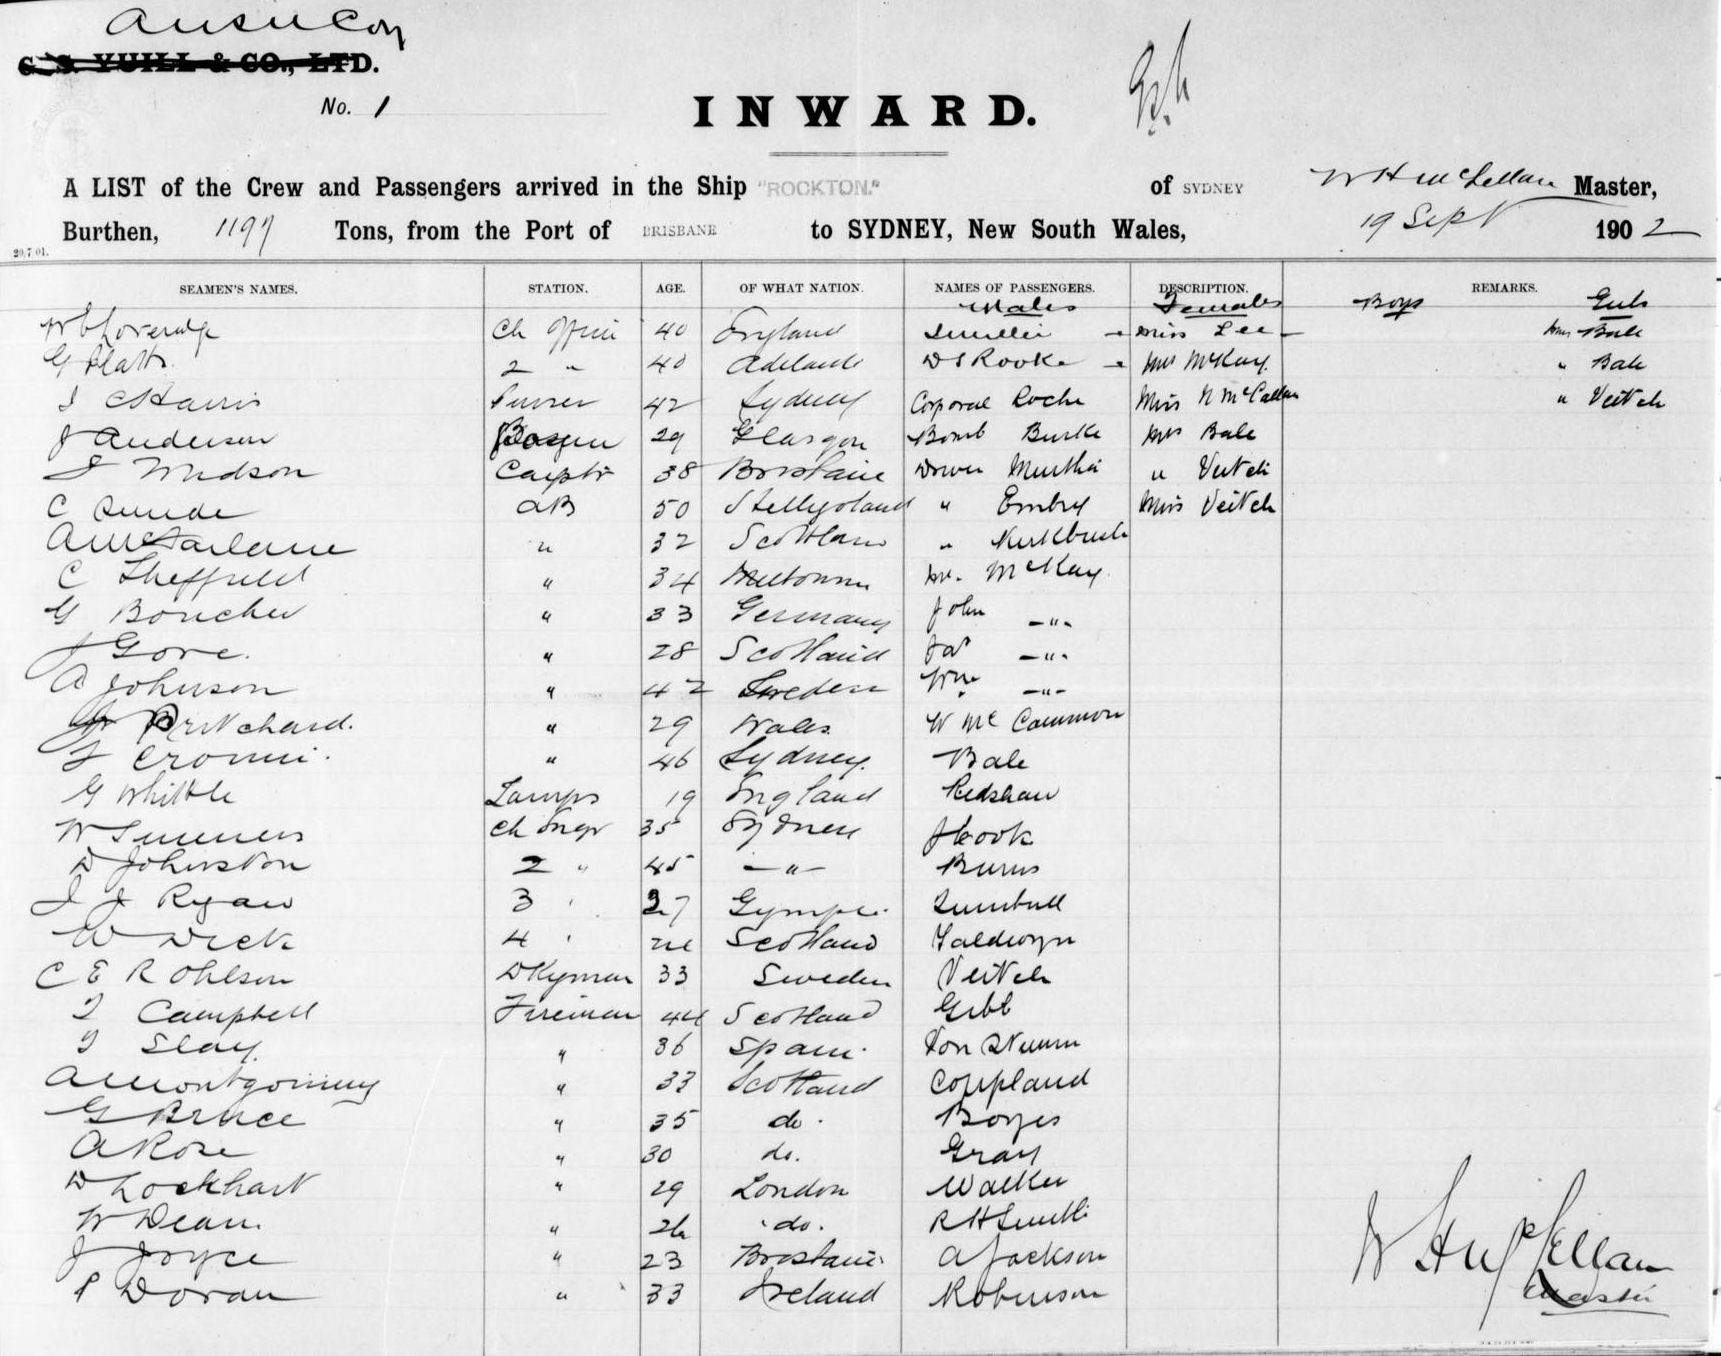 AUSN Coy
G. S. YUILL & CO., LTD.
No. 1
INWARD.
A LIST of the Crew and Passengers arrived in the Ship "ROCKTON." of SYDNEY W H McLellan Master,
Burthen, 1197 Tons, from the Port of BRISBANE to SYDNEY, New South Wales, 19 Sept 1902
20.7.01.
SEAMEN'S NAMES. STATION. AGE. OF WHAT NATION. NAMES OF PASSENGERS. DESCRIPTION. REMARKS.
Males Females Boys Girls
Ch 40 England Miss Lee Bale
G Platt 2 " 40 Adelaide D S Rooke Mrs McKay " Bale
Harris Purser 42 Sydney Corporal Roche Miss N McCallum " Veitch
J Anderson 29 Glasgow Bomb Burke Mrs Bale
Carptr 38 Brisbane Driver " Veitch
C AB 50 " Embry Miss Veitch
A McFarlane " 32 Scotland "
C Sheffield " 34 Mr McKay
G Boucher " 33 Germany John -"-
J Gove. " 28 Scotland Jas -"-
A Johnson " 42 Sweden Wm -"-
Pritchard. " 29 Wales W McCammon
" 46 Sydney. Bale
G Whittle Lamps 19 England Redshaw
W Ch Engr 35 Sydney J Cook
D Johnston 2 " 45 -"- Burns
J J Ryan 3 ' 27 Gympie Turnbull
W Dick 4 ' Scotland
C E R Ohlson Dkyman 33 Sweden Veitch
Campbell Fireman 44 Scotland Gibb
" 36 Spain Von Stumm
A Montgomery " 33 Scotland Coupland
G Bruce " 35 do. Boyes
A Rose " 30 do. Gray
D Lockhart " 29 London Walker
W Dean " do. R H Smith
J Joyce " 23 Brisbane A Jackson
P Doran " 33 Ireland Robinson
W H McLellan
Master